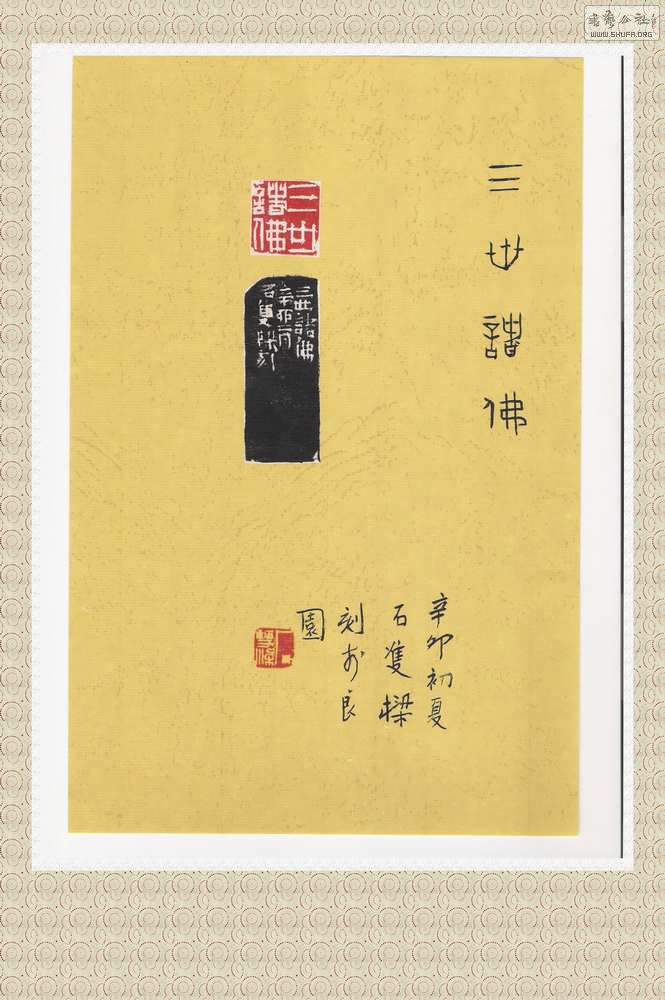 三世諸佛
三世諸佛
三世諸佛
辛卯
石隻樑刻
辛卯初夏
石隻樑
刻於良
園
書藝公社
WWW.SHUFA.ORG